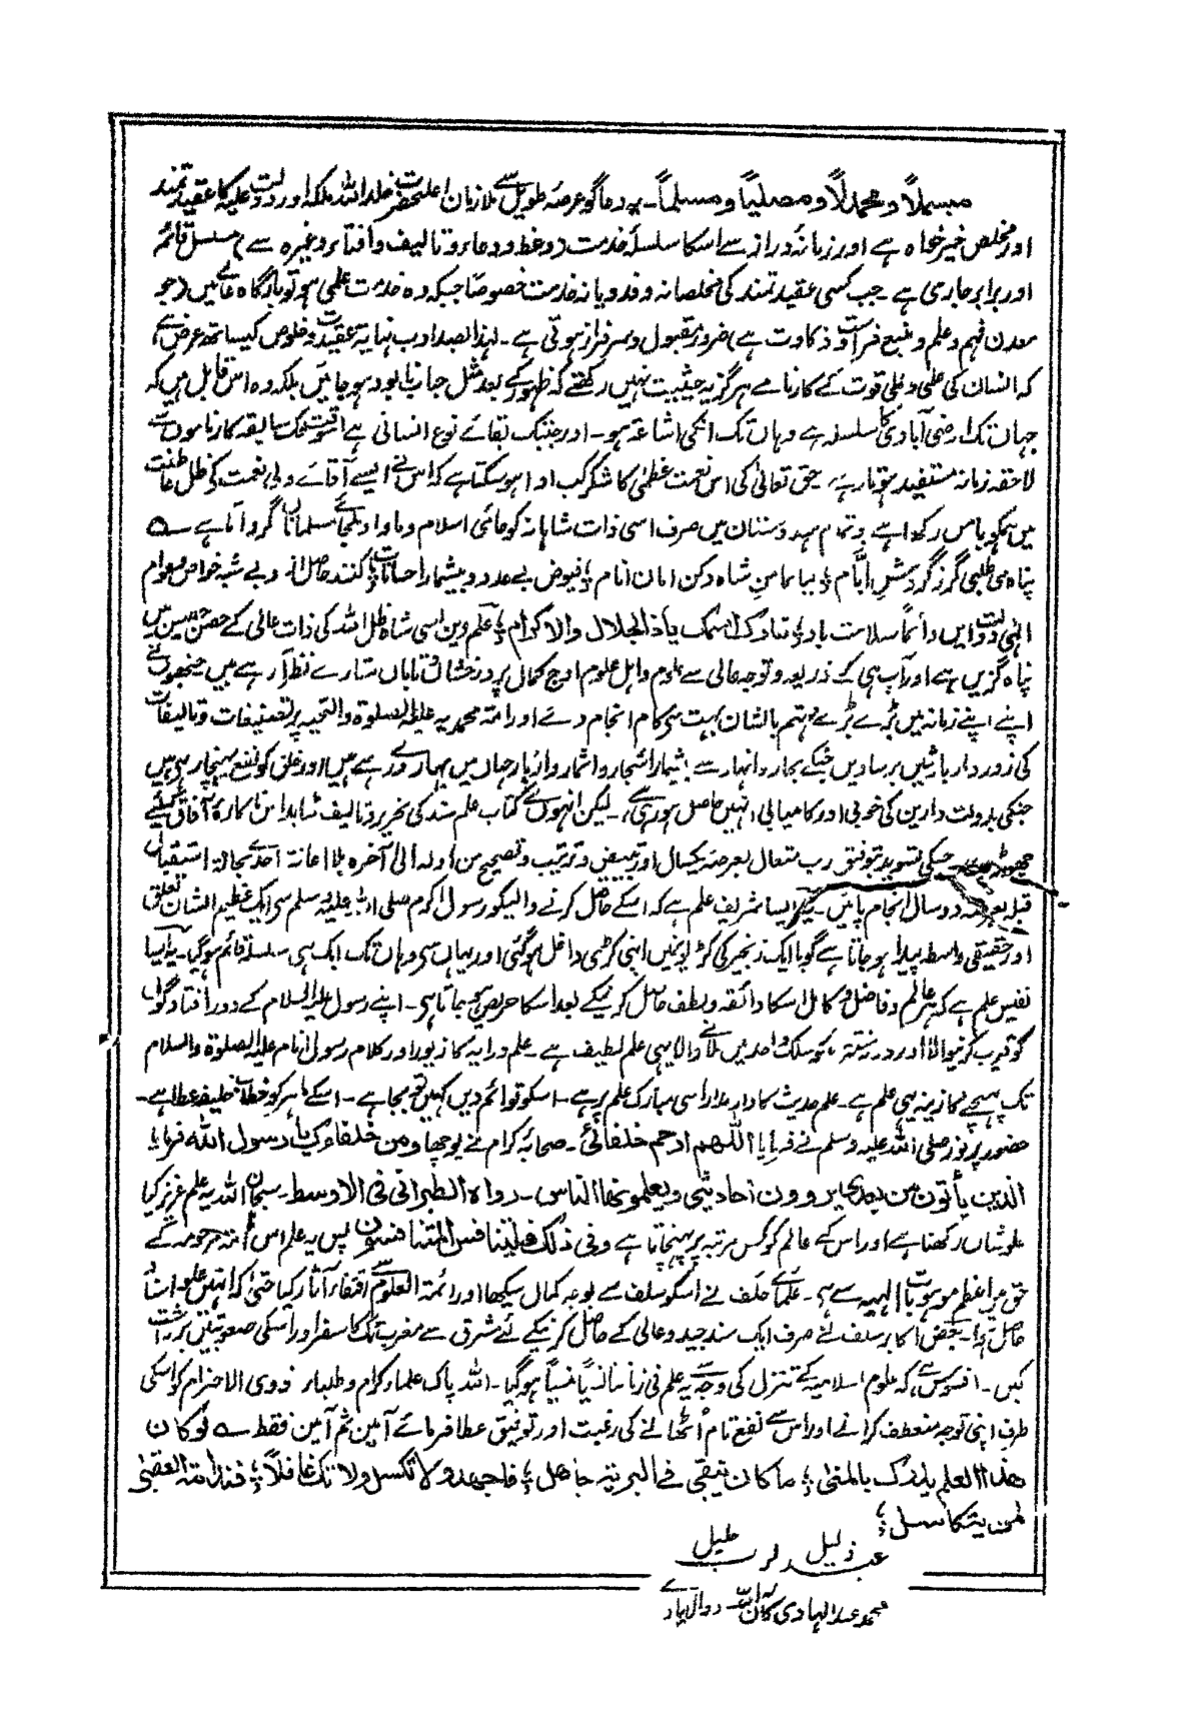 مبسملاً و محمدلاً و مصلیاً و مسلماً۔ یہ دعاگو عرصۂ طویل سے ملازمان اعلحضرت خلد اللہ ملکہ اور دولت علیہ کا عقیدتمند
اور مخلص خیر خواہ ہے اور زمانۂ دراز سے اسکا سلسلۂ خدمت (وعظ و دعا و تالیف و افتا وغیرہ سے) مسلسل قائم
اور برابر جاری ہے جب کسی عقیدتمند کی مخلصانہ و فدویانہ خدمت خصوصاً جبکہ وہ خدمت علمی ہو تو بارگاہ عالی میں (جو
معدن فہم و علم و منبع فراست و ذکاوت ہے) ضرور مقبول و سرفراز ہوتی ہے۔ لہذا بصد ادب نہایت عقیدت و خلوص کیساتھ عرض ہے
کہ انسان کی علمی و عملی قوت کے کارنامے ہرگز یہ حیثیت نہیں رکھتے کہ ظہور کے بعد مثل حباب نابود ہو جائیں بلکہ وہ اس قابل ہیں کہ
جہان تک ارضی آبادی کا سلسلہ ہے وہان تک انکی اشاعت ہو۔ اور جبتک بقائے نوع انسانی ہے اسوقت تک سابقہ کارناموں سے
لاحقہ زمانہ مستفید ہوتا رہے، حق تعالیٰ کی اس نعمت عظمیٰ کا شکر کب ادا ہو سکتا ہے کہ اس نے ایسے آقائے ولی نعمت کی ظل عاطفت
میں ہمکو پاس رکھا ہے جو تمام ہندوستان میں صرف اسی ذات شاہانہ کو حامی اسلام و ماوا و ملجائے مسلمانان گردانا ہے
پناہ می طلبی گر ز گردش ایام ؛ بیا بمامن شاہ دکن امان انام ؛ فیوض بے عدد و بیشمار احسانات ؛ کنند حاصل ازو بے شبہ خواص و عوام
الٰہی دولت و ایں دائماً سلامت باد ؛ تبارک اسمک یا ذا الجلال والاکرام ؛ علم دین اسی شاہ ظل اللہ کی ذات عالی کے حصن حصین میں
پناہ گزیں ہے اور آپ ہی کے ذریعہ و توجہ عالی سے علوم و اہل علوم اوج کمال پر درخشاں و تاباں ستارے نظر آ رہے ہیں جنھوں نے
اپنے اپنے زمانہ میں بڑے بڑے مہتم بالشان بہت سے کام انجام دئے اور امتہ محمدیہ علیہ الصلوۃ والتحیہ پر تصنیفات و تالیفات
کی زوردار بارشیں برسا دیں جنکے بحار و انہار سے بیشمار اشجار و اثمار و ازہار جہاں میں بہار دے رہے ہیں اور خلق کو نفع پہنچا رہی ہیں
جنکی بدولت دارین کی خوبی اور کامیابی انہیں حاصل ہو رہی ہے۔ لیکن انہوں نے کتاب علم سند کی تحریر و تالیف شاید اس ناکارۂ آفاق کیلئے
چھوڑدی جسکی تسوید بتوفیق رب متعال بعرصۂ یکسال اور تبییض و ترتیب و تصحیح من اولہ الی آخرہ بلا اعانتہ احدے بحالۃ استقبال
قبلہ بعرصہ دو سال انجام پائیں۔ یہ ایسا شریف علم ہے کہ اسکے حاصل کرنے والیکو رسول اکرم صلی اللہ علیہ وسلم سے ایک عظیم الشان تعلق
اور حقیقی واسطہ پیدا ہو جاتا ہے گویا ایک زنجیر کی کڑیوں میں اپنی کڑی داخل ہو گئی اور یہاں سے وہاں تک ایک ہی سلسلہ قائم ہو گیا۔ یہ ایسا
نفیس علم ہے کہ ہر عالم و فاضل و کامل اسکا ذائقہ و لطف حاصل کرنیکے بعد اسکا حریص ہو جاتا ہے۔ اپنے رسول علیہ السلام کے دور افتادگوں
کو قریب کرنیوالا اور در منتشرہ کو سلک واحد میں ملانے والا یہی علم لطیف ہے۔ علم درایہ کا زیور اور کلام رسول انام علیہ الصلوۃ والسلام
تک پہنچنے کا زینہ یہی علم ہے۔ علم حدیث کا دار مدار اسی مبارک علم پر ہے۔ اسکو قوائم دیں کہیں تو بجا ہے۔ اسکے ماہر کو خطاب خلیفہ عطا ہے۔
حضور پرنور صلی اللہ علیہ وسلم نے فرمایا اللھم ارحم خلفائی۔ صحابہ کرام نے پوچھا ومن خلفاءک یا رسول اللہ فرمایا
الذین یأتون من بعدی یروون احادیثی ویعلمونھا الناس۔ رواہ الطبرانی فی الاوسط۔ سبحان اللہ یہ علم عزیز کیا
علوشاں رکھتا ہے اور اس کے عالم کو کس مرتبہ پر پہنچاتا ہے وفی ذلک فلیتنافس المتنافسون پس یہ علم اس امتہ مرحومہ کے
حق میں اعظم موہوبات الہیہ سے ہے۔ علمائے خلف نے اسکو سلف سے بوجہ کمال سیکھا اور ائمۃ العلوم سے اقتفاء آثار کیا حتی کہ انہیں علو اسناد
حاصل ہوا۔ بعض اکابر سلف نے صرف ایک سند جید و عالی کے حاصل کرنیکے لئے مشرق سے مغرب تک کا سفر اور اسکی صعوبتیں برداشت
کیں۔ افسوس ہے، کہ علوم اسلامیہ کے تنزل کی وجہ سے یہ علم فی زماننا نسیاً منسیاً ہو گیا۔ اللہ پاک علماء کرام و طلباء ذوی الاحترام کو اسکی
طرف اپنی توجہ منعطف کرانے اور اس سے نفع تام اٹھانے کی رغبت اور توفیق عطا فرمائے آمین ثم آمین فقط لو کان
ھذا العلم یدرک بالمنی ؛ ما کان یبقی فی البریۃ جاھل ؛ فاجھد ولا تکسل ولا تک غافلاً ؛ فندامۃ العقبی
لمن یتکاسل ؛
عبد ذلیل لرب جلیل
محمد عبدالہادی کان اللہ لہ